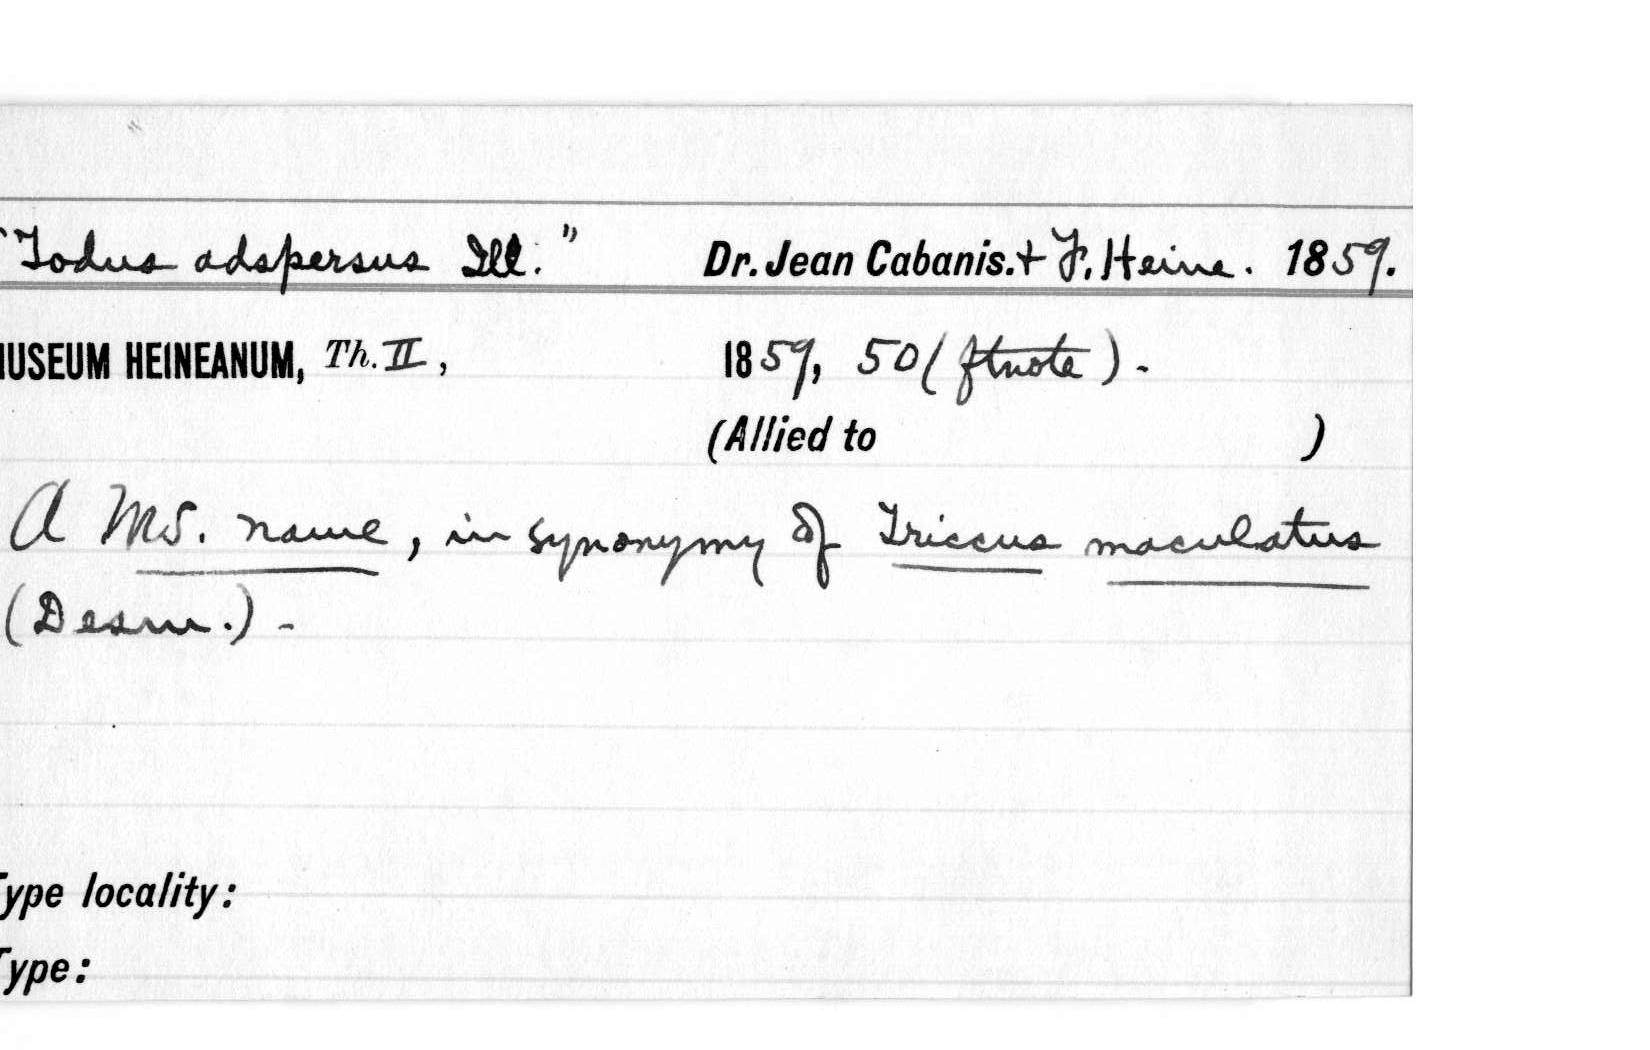 "Todus adspersus Ill."  Dr. Jean Cabanis. + F. Heine. 1859.
MUSEUM HEINEANUM, Th. II,  1859, 50 (ftnote).
(Allied to )
A MS. name, in synonymy of Triccus maculatus
(Desm.).-
Type locality:
Type: